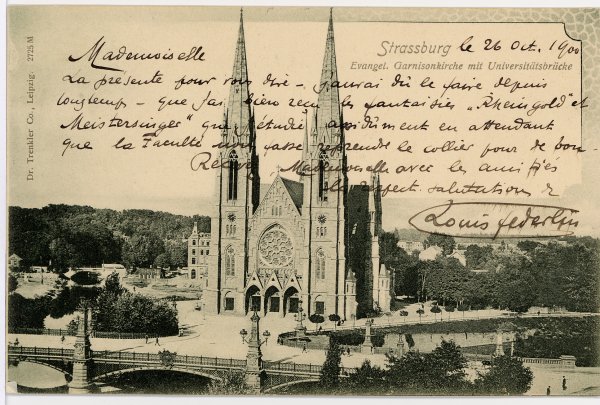 Strassburg le 26 Oct. 1900
Evangel. Garnisonkirche mit Universitätsbrücke
Dr. Trenkler Co., Leipzig. 2725 M
Mademoiselle
La présente pour vous dire - j'aurai dû le faire depuis
longtemps - que j'ai bien reçu les fantaisies „Rheingold" et
Meistersinger" que j'étudie assidûment en attendant
que la Faculté me fasse reprendre le collier pour de bon.
Mademoiselle avec les amitiés
salutations de
Louis Federlin